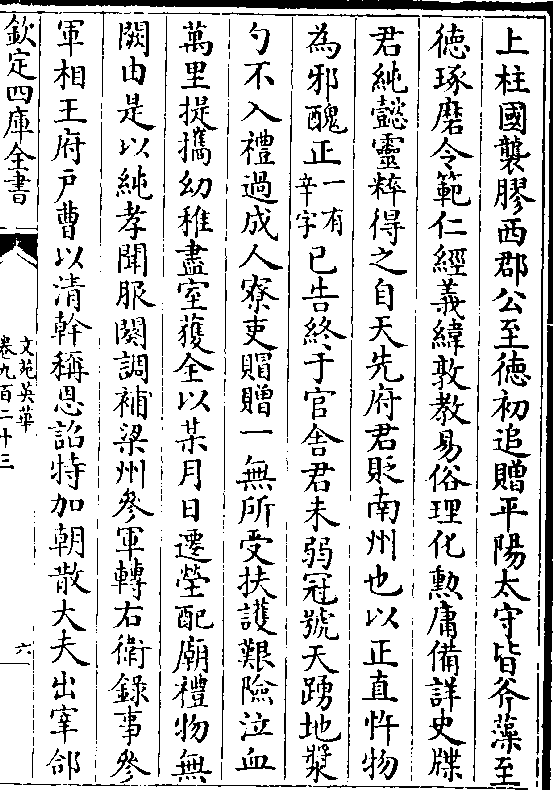 上柱國襲膠西郡公至德初追贈平陽太守皆斧藻至
德琢磨令範仁經義緯敦教易俗理化勲庸備詳史牒
君純懿靈粹得之自天先府君貶南州也以正直忤物
為邪醜正一有辛字已告終于官舍君未弱冠號天踴地漿
勺不入禮過成人寮吏賵贈一無所受扶護艱險泣血
萬里提攜幼稚盡室獲全以某月日遷塋配廟禮物無
闕由是以純孝聞服闋調補梁州參軍轉右衛錄事參
軍相王府戸曹以清幹稱恩詔特加朝散大夫出宰郃
欽定四庫全書
文苑英華
卷九百二十三
六